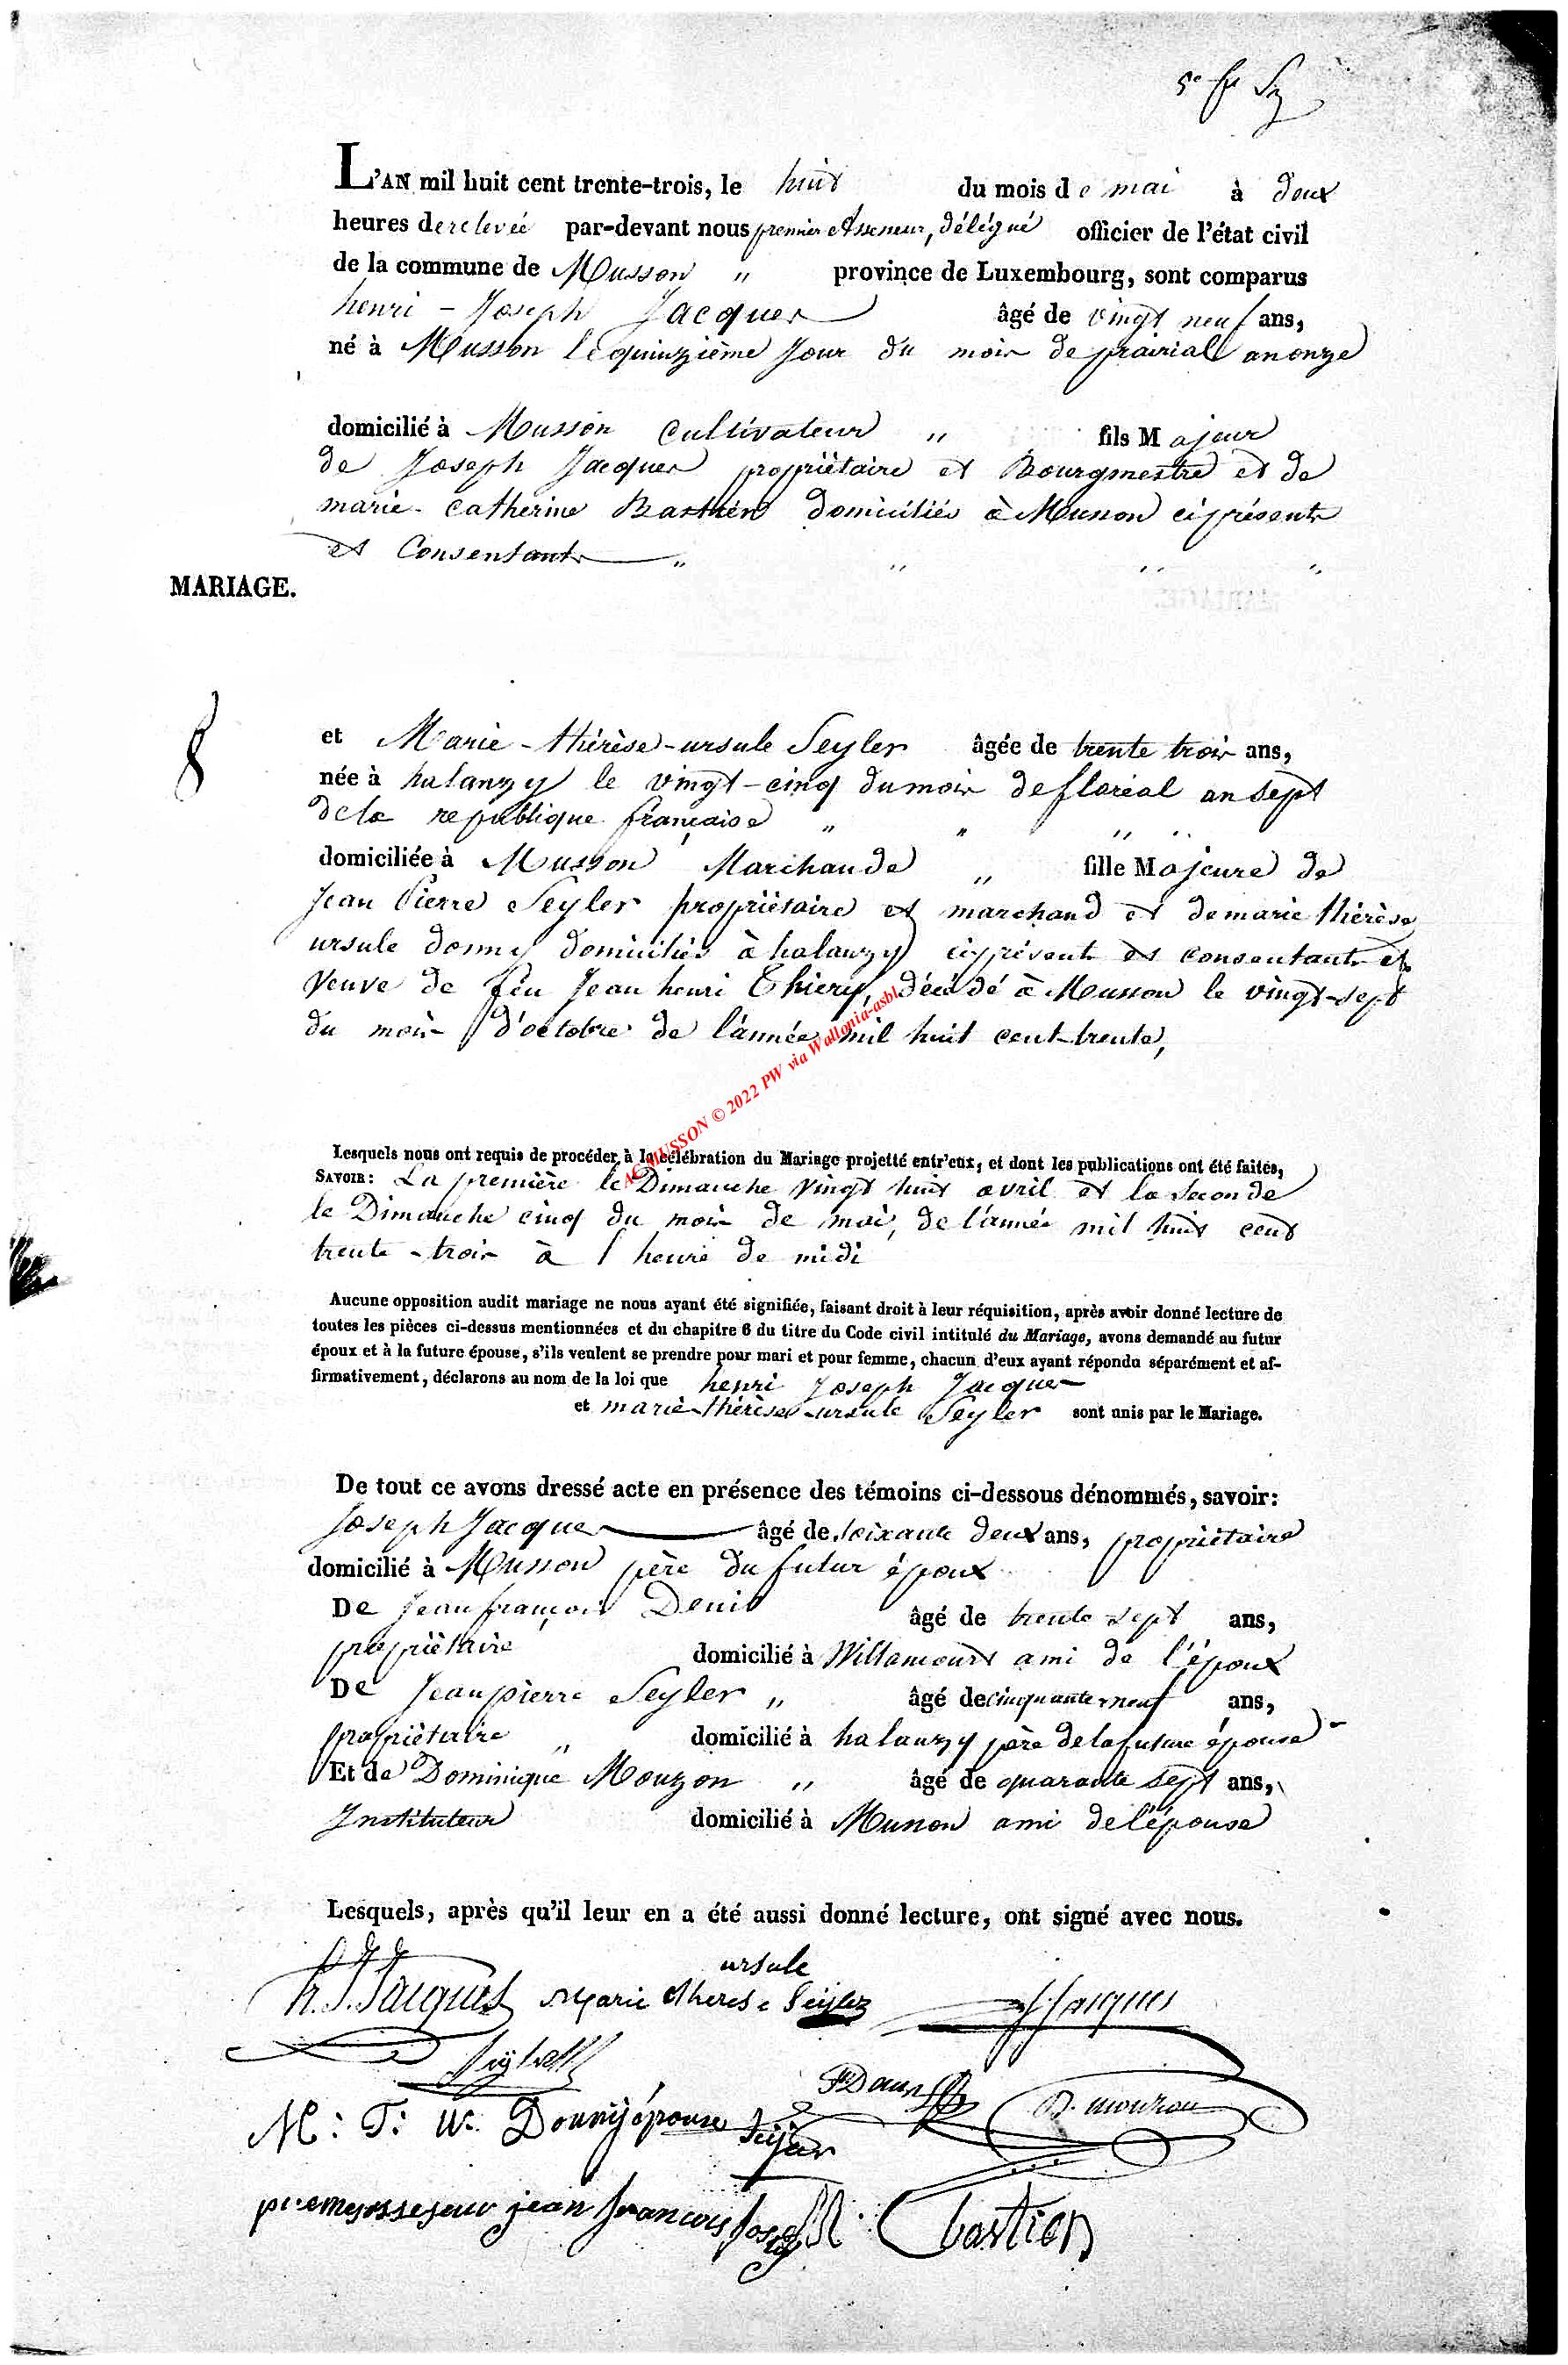 L'AN mil huit cent trente-trois, le huit du mois de mai à deux
heures de relevée par-devant nous premier Assesseur, délégué officier de l'état civil
de la commune de Musson " province de Luxembourg, sont comparus
henri - Joseph Jacques âgé de vingt neuf ans,
né à Musson le quinzième Jour du mois de prairial an onze
domicilié à Musson Cultivateur " fils Majeur
de Joseph Jacques propriétaire et Bourgmestre et de
marie - Catherine Basthien domiciliés à Musson ci présents
et Consentants " " " "
MARIAGE.
8
et Marie - thérèse - ursule Seyler âgée de trente trois ans,
née à halanzy le vingt - cinq du mois de floréal an sept
de la republique française " " " "
domiciliée à Musson Marchande " fille Majeure de
Jean Pierre Seyler propriétaire et marchand et de marie thérèse
ursule donny domiciliés à halanzy ci présents et consentants et
Veuve de feu Jean henri Thiery, décédé à Musson le vingt-sept
du mois d'octobre de l'année mil huit cent-trente,
AC MUSSON © 2022 PW via Wallonia-asbl
Lesquels nous ont requis de procéder à la célébration du Mariage projetté entr'eux, et dont les publications ont été faites,
SAVOIR: La première le Dimanche Vingt huit avril et la Seconde
le Dimanche cinq du mois de mai, de l'année mil huit cent
trente - trois à l heure de midi
Aucune opposition audit mariage ne nous ayant été signifiée, faisant droit à leur réquisition, après avoir donné lecture de
toutes les pièces ci-dessus mentionnées et du chapitre 6 du titre du Code civil intitulé du Mariage, avons demandé au futur
époux et à la future épouse, s'ils veulent se prendre pour mari et pour femme, chacun d'eux ayant répondu séparément et af-
firmativement, déclarons au nom de la loi que henri Joseph Jacques
et marie - thérèse - ursule Seyler sont unis par le Mariage.
De tout ce avons dressé acte en présence des témoins ci-dessous dénommés, savoir:
Joseph Jacques âgé de soixante deux ans, propriétaire
domicilié à Musson père du futur époux
De Jean françois Denis âgé de trente sept ans,
propriétaire domicilié à Willancourt ami de l'époux
De Jean pierre Seyler " âgé de cinquante neuf ans,
propriétaire " domicilié à halanzy père de la future épouse
Et de Dominique Mouzon " âgé de quarante sept ans,
Instituteur domicilié à Musson ami de l'épouse
Lesquels, après qu'il leur en a été aussi donné lecture, ont signé avec nous.
h. J. Jacques Marie therese ursule Seyler J Jacques
Seyler
D. mouzon
M: T: U: Donny épouse Seyler
premier assesseur jean françois joseph Bastien